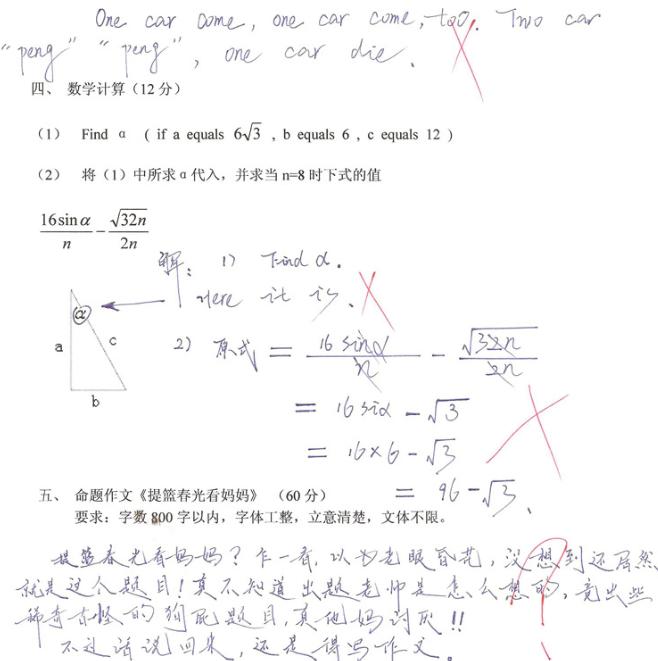 One car come, one car come, too. Two car
"peng" "peng", one car die.
四、 数学计算（12 分）
（1） Find α （ if a equals 6√3 , b equals 6 , c equals 12 ）
（2） 将（1）中所求α代入，并求当 n=8 时下式的值
16sinα/n − √32n/2n
解：1） Find α.
Here it is.
α
a c
b
2） 原式 = 16 sinα/n − √32n/2n
= 16 siα − √3
= 16×6 − √3
= 96 − √3.
五、 命题作文《提篮春光看妈妈》（60 分）
要求：字数 800 字以内，字体工整，立意清楚，文体不限。
提篮春光看妈妈？乍一看，以为老眼昏花，没想到还居然
就是这个题目！真不知道出题老师是怎么想的，竟出些
稀奇古怪的狗屁题目，真他妈讨厌!!
不过话说回来，还是得写作文。